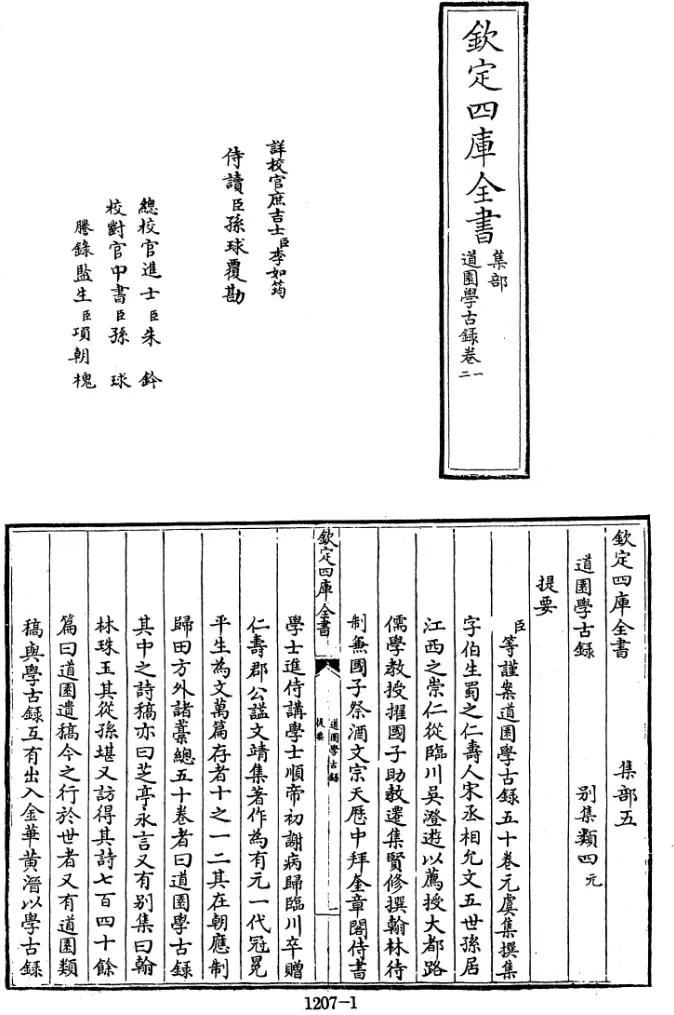 欽定四庫全書
集部
道園學古錄卷一
二
詳校官庶吉士臣李如筠
侍讀臣孫球覆勘
總校官進士臣朱鈐
校對官中書臣孫球
謄錄監生臣項朝槐
欽定四庫全書 集部五
道園學古錄 別集類四元
提要
臣等謹案道園學古錄五十卷元虞集撰集
字伯生蜀之仁壽人宋丞相允文五世孫居
江西之崇仁從臨川吳澄遊以薦授大都路
儒學教授擢國子助教遷集賢修撰翰林待
制兼國子祭酒文宗天厯中拜奎章閣侍書
欽定四庫全書
道園學古錄
提要
一
學士進侍講學士順帝初謝病歸臨川卒贈
仁壽郡公諡文靖集著作為有元一代冠冕
平生為文萬篇存者十之一二其在朝應制
歸田方外諸藁總五十卷者曰道園學古錄
其中之詩稿亦曰芝亭永言又有别集曰翰
林珠玉其從孫堪又訪得其詩七百四十餘
篇曰道園遺稿今之行於世者又有道園類
稿與學古錄互有出入金華黃溍以學古錄
1207-1